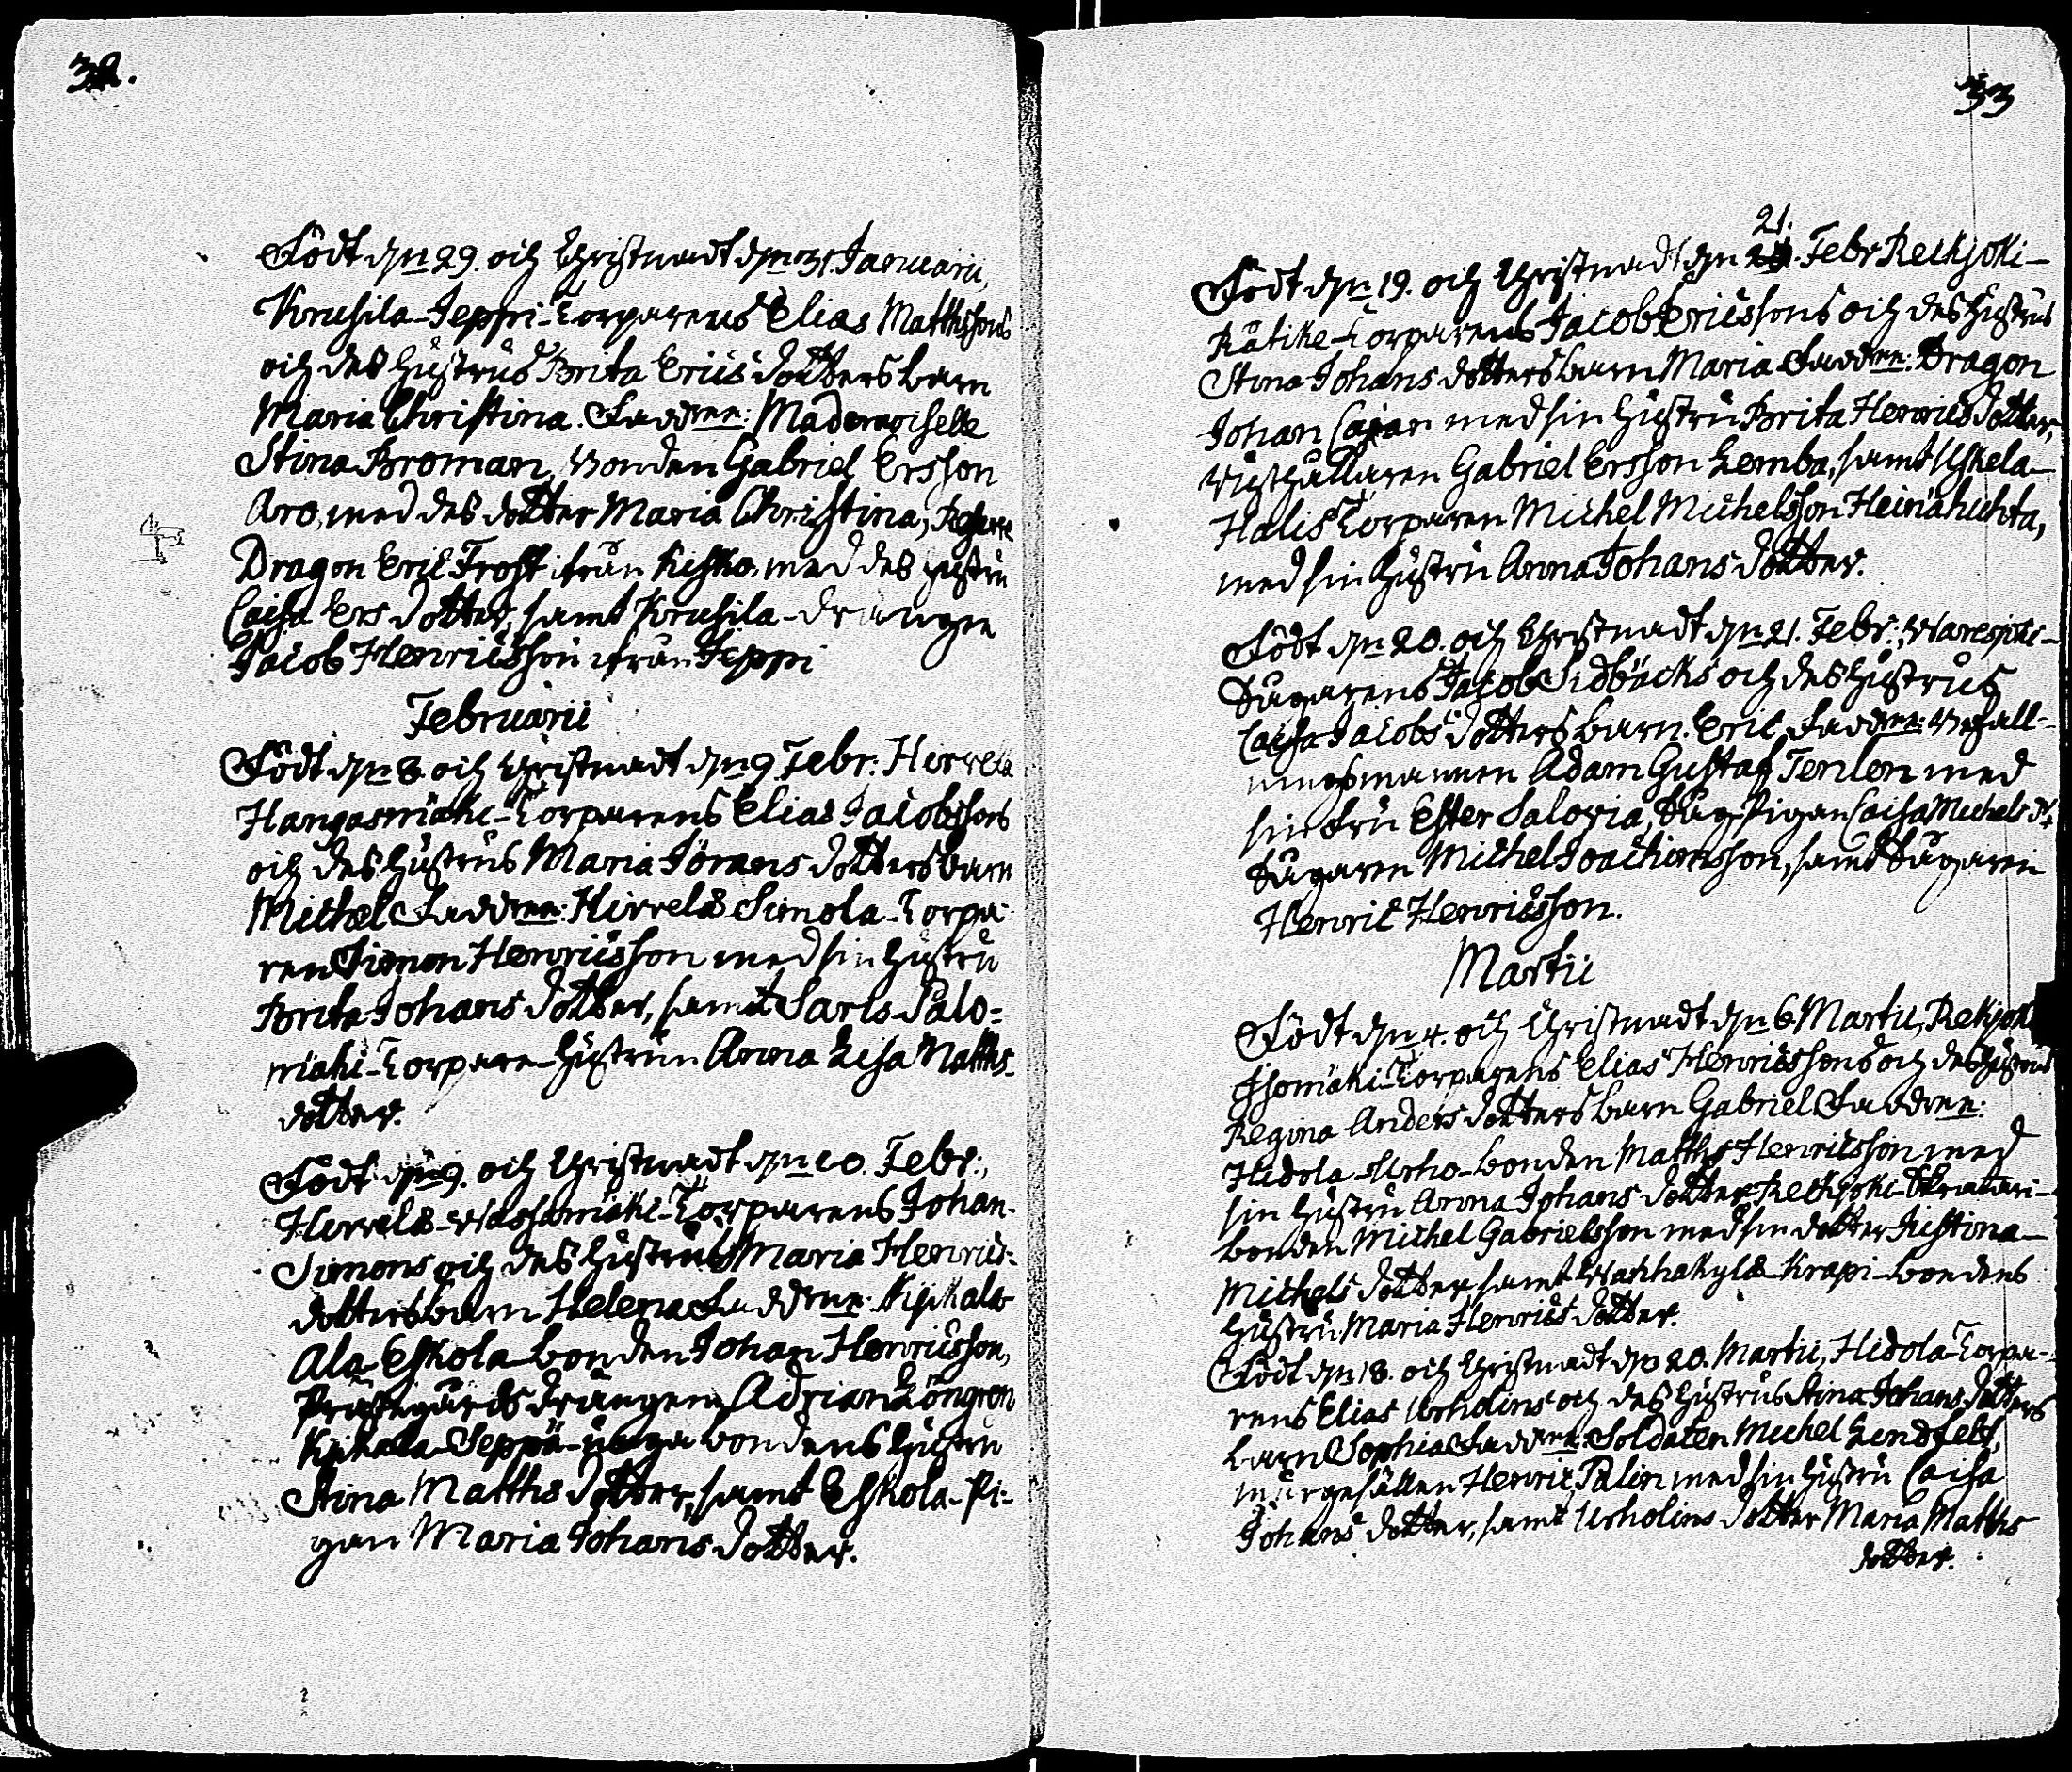 32.
Födt dn 29. och Christnadt dn 31. Januarii,
Krusila-Jeppi-Torparens Elias Matthssons
och des Hustrus Brita Erics dotters barn
Maria Christina. Faddrar: Mademoiselle
Stina Broman, bonden Gabriel Ersson
Aro, med des dotter Maria Christina,
Dragon Eric Frost ifrån Kisko, med des hustru
Caisa Ers dotter, samt Krusila-drängen
Jacob Henricsson ifrån Jeppi
Februarii
Födt dn 8. och Christnadt dn 9. Febr: Hirvelä
Hangasmäki-Torparens Elias Jacobssons
och des Hustrus Maria Jörans dotters barn
Michel Faddrar: Hirvelä Simola-Torpa-
ren Simon Henricsson med sin hustru
Brita Johans dotter, samt Sarls-Palo=
mäki-Torpare-hustrun Anna Lisa Matths-
dotter.
Födt dn 9. och Christnadt dn 10. Febr:,
Hirvelä-Wassamäki-Torparens Johan
Simons och des Hustrus Maria Henrics-
dotters barn Helena Faddrar: Kijkala
Ala-Eskola-bonden Johan Henricsson,
Prästegårds drängen Adrian Löngren
Kijkala-Seppä-unga bondens hustru
Stina Matths dotter, samt Eskola-Pi-
gan Maria Johans dotter.
33
21.
Födt dn 19. och Christnadt dn Febr Reckjoki-
Rätike-Torparens Jacob Ericssons och des hustrus
Stina Johans dotters barn Maria Faddrar: Dragon
Johan Cajan med sin hustru Brita Henrics dotter,
Gabriel Ersson Lemba, samt Uskela-
Halis Torparen Michel Michelsson Heinähuhta,
med sin hustru Anna Johans dotter.
Födt dn 20. och Christnadt dn 21. Febr:, Waresjoki-
Sågarens Jacob Sidbäcks och des hustrus
Caisa Jacobs dotters barn. Eric Faddrar: Befall-
ningsmannen Adam Gustaf Tenlen med
sin fru Ester Salovia, Såg-Pigan Caisa Michels dr,
Sågaren Michel Joachimsson, samt Sågaren
Henric Henricsson.
Martii
Födt dn 4. och Christnadt dn 6. Martii, Rekjoki
Isomäki-Torparens Elias Henricssons och des hustrus
Regina Anders dotters barn Gabriel Faddrar:
Hidola-Urho-bonden Matths Henricsson med
sin hustru Anna Johans dotter, Reckjoki-Skratari-
bonden Michel Gabrielsson med sin dotter Justina-
Michels dotter, samt Wanhakylä-Krapi-bondens
hustru Maria Henrics dotter.
Födt dn 18. och Christnadt dn 20. Martii, Hidola-Torpa-
rens Elias Urholins och des hustrus Stina Johans dotters
barn Sophia Faddrar: Soldaten Michel Lendfelt,
murgesällen Henric Palin med sin hustru Caisa
Johans dotter, samt Urholins dotter Maria Matths
dotter.